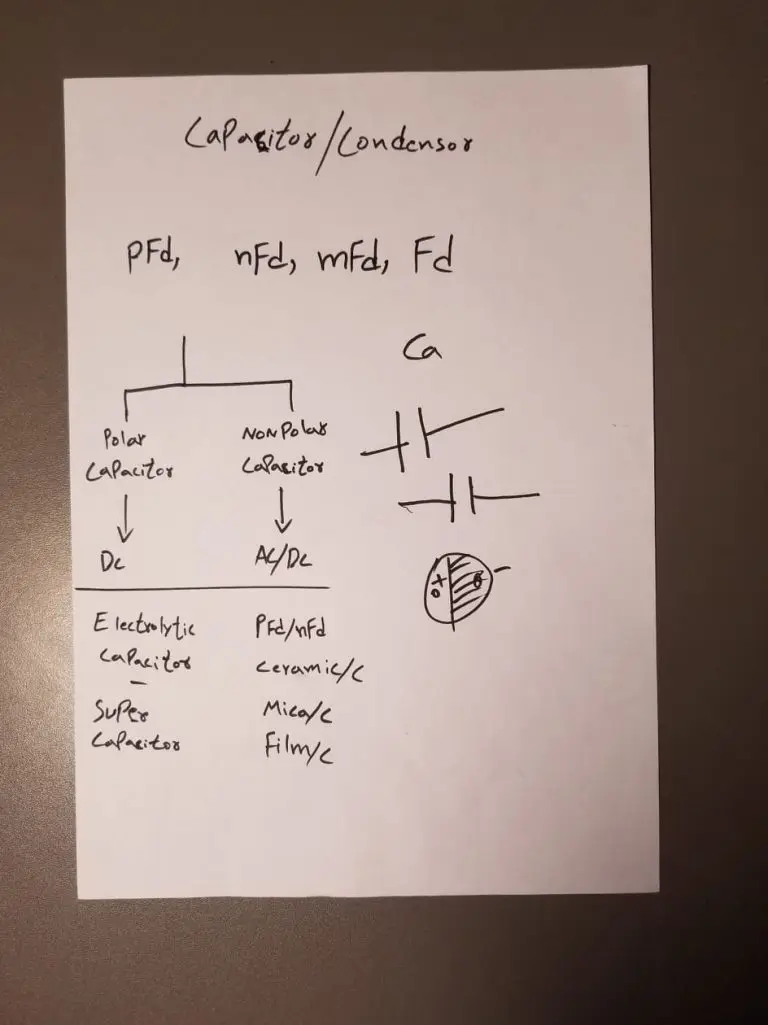 Capacitor/Condensor
PFd, nFd, mFd, Fd
Ca
Polar
Capacitor
NonPolar
Capacitor
Dc
AC/DC
Electrolytic
Capacitor
Super
Capacitor
PFd/nFd
Ceramic/C
Mica/C
Film/C
+
-